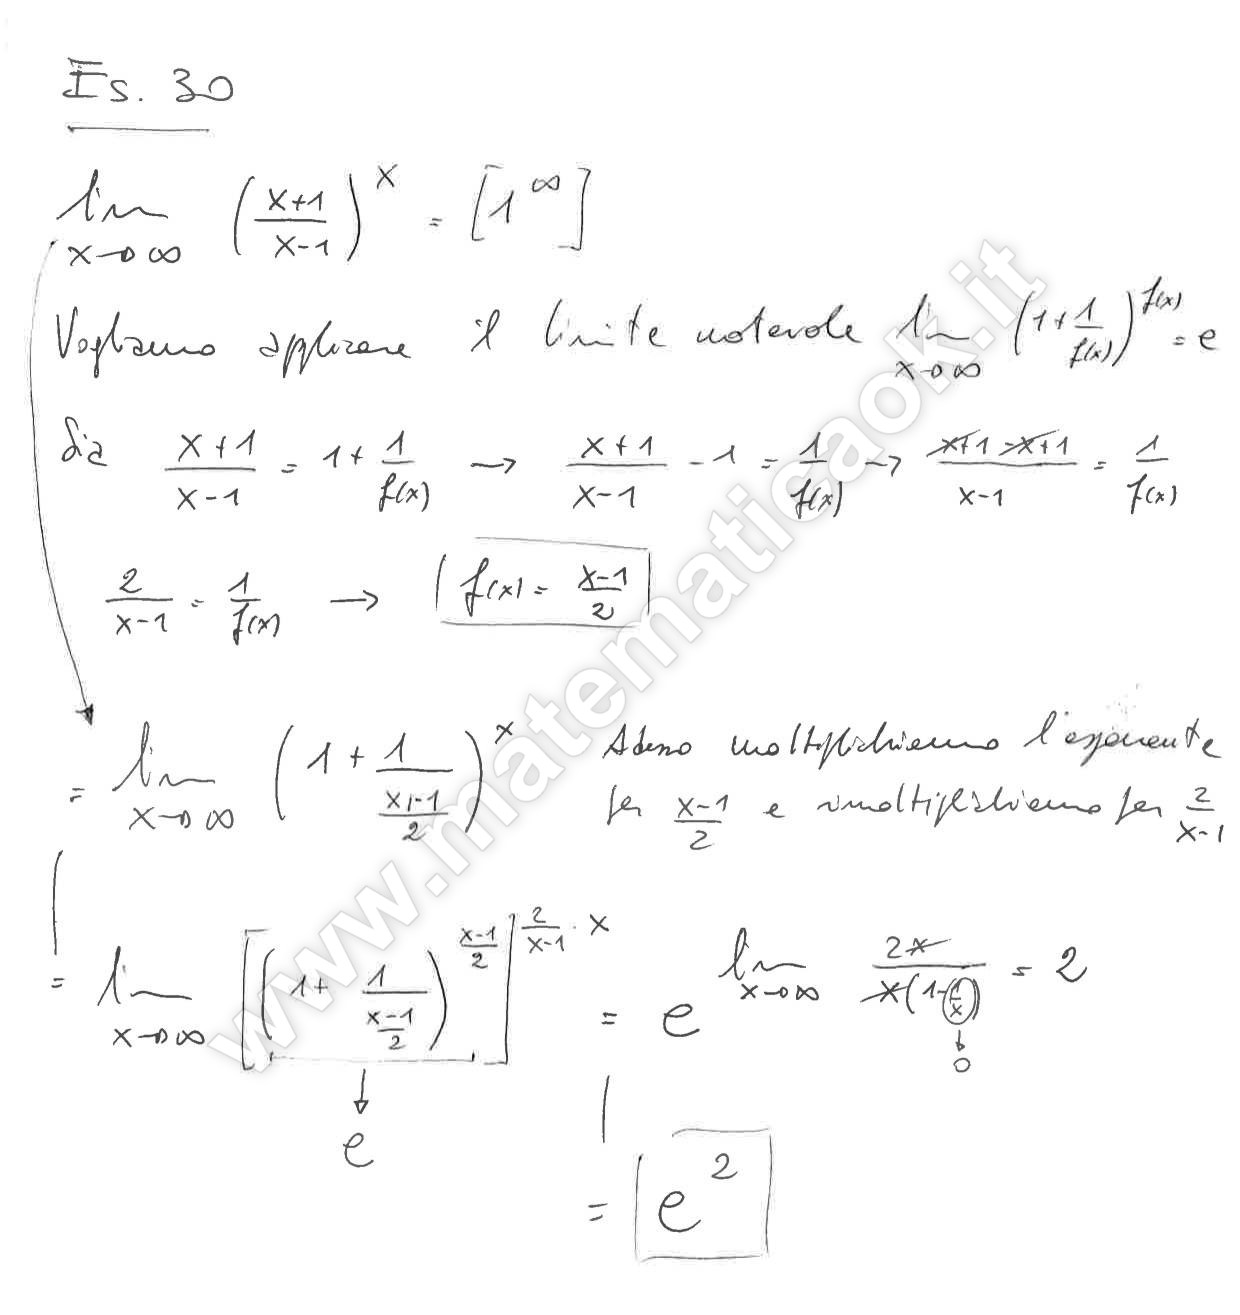 Es. 30
lim x→∞ ((x+1)/(x-1))^x = [1^∞]
Vogliamo applicare il limite notevole lim x→∞ (1+1/f(x))^f(x) = e
Sia (x+1)/(x-1) = 1+1/f(x) → (x+1)/(x-1) - 1 = 1/f(x) → (x+1-x+1)/(x-1) = 1/f(x)
2/(x-1) = 1/f(x) → f(x) = (x-1)/2
= lim x→∞ (1+1/((x-1)/2))^x Adesso moltiplichiamo l'esponente
per (x-1)/2 e rimoltiplichiamo per 2/(x-1)
= lim x→∞ [(1+1/((x-1)/2))^((x-1)/2)]^(2/(x-1) · x) = e^(lim x→∞ 2x/(x(1-1/x)) = 2)
0
e
= e^2
www.matematicaok.it